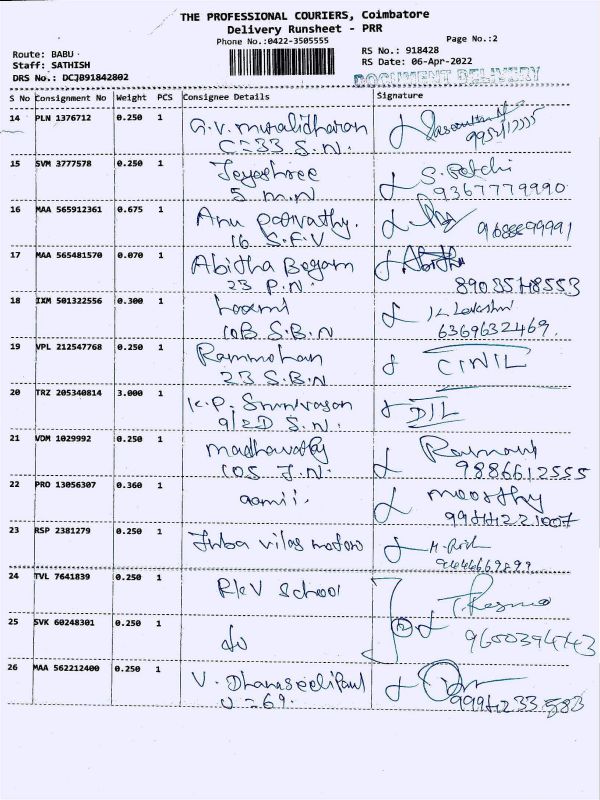 THE PROFESSIONAL COURIERS, Coimbatore
Delivery Runsheet - PRR
Phone No.:0422-3505555
Page No.:2
Route: BABU
Staff: SATHISH
DRS No.: DCJB91842802
RS No.: 918428
RS Date: 06-Apr-2022
DOCUMENT DELIVERY
S No Consignment No Weight PCS Consignee Details Signature
14 PLN 1376712 0.250 1 G.V. muralidharan
C=33 S.N.
15 SVM 3777578 0.250 1 Jeyashree S. Petchi
5 M.N 9367779990
16 MAA 565912361 0.675 1 Anu Parvathy.
16 S.F.V
17 MAA 565481570 0.070 1 Abitha Begam Abitha
23 P.N.
18 IXM 501322556 0.300 1 Laxmi K Lakshmi
10B S.B.N 6369632469.
19 VPL 212547768 0.250 1 Rammohan CINIL
23 S.B.N
20 TRZ 205340814 3.000 1 K.P. Srinivasan DIL
9/2D S.N.
21 VDM 1029992 0.250 1 madhavathy
105 J.N. 9886612555
22 PRO 13056307 0.360 1 aamii. moorthy
23 RSP 2381279 0.250 1 Inba vilas motors
24 TVL 7641839 0.250 1 RKV School
25 SVK 60248301 0.250 1 do
26 MAA 562212400 0.250 1 V.
U=69.